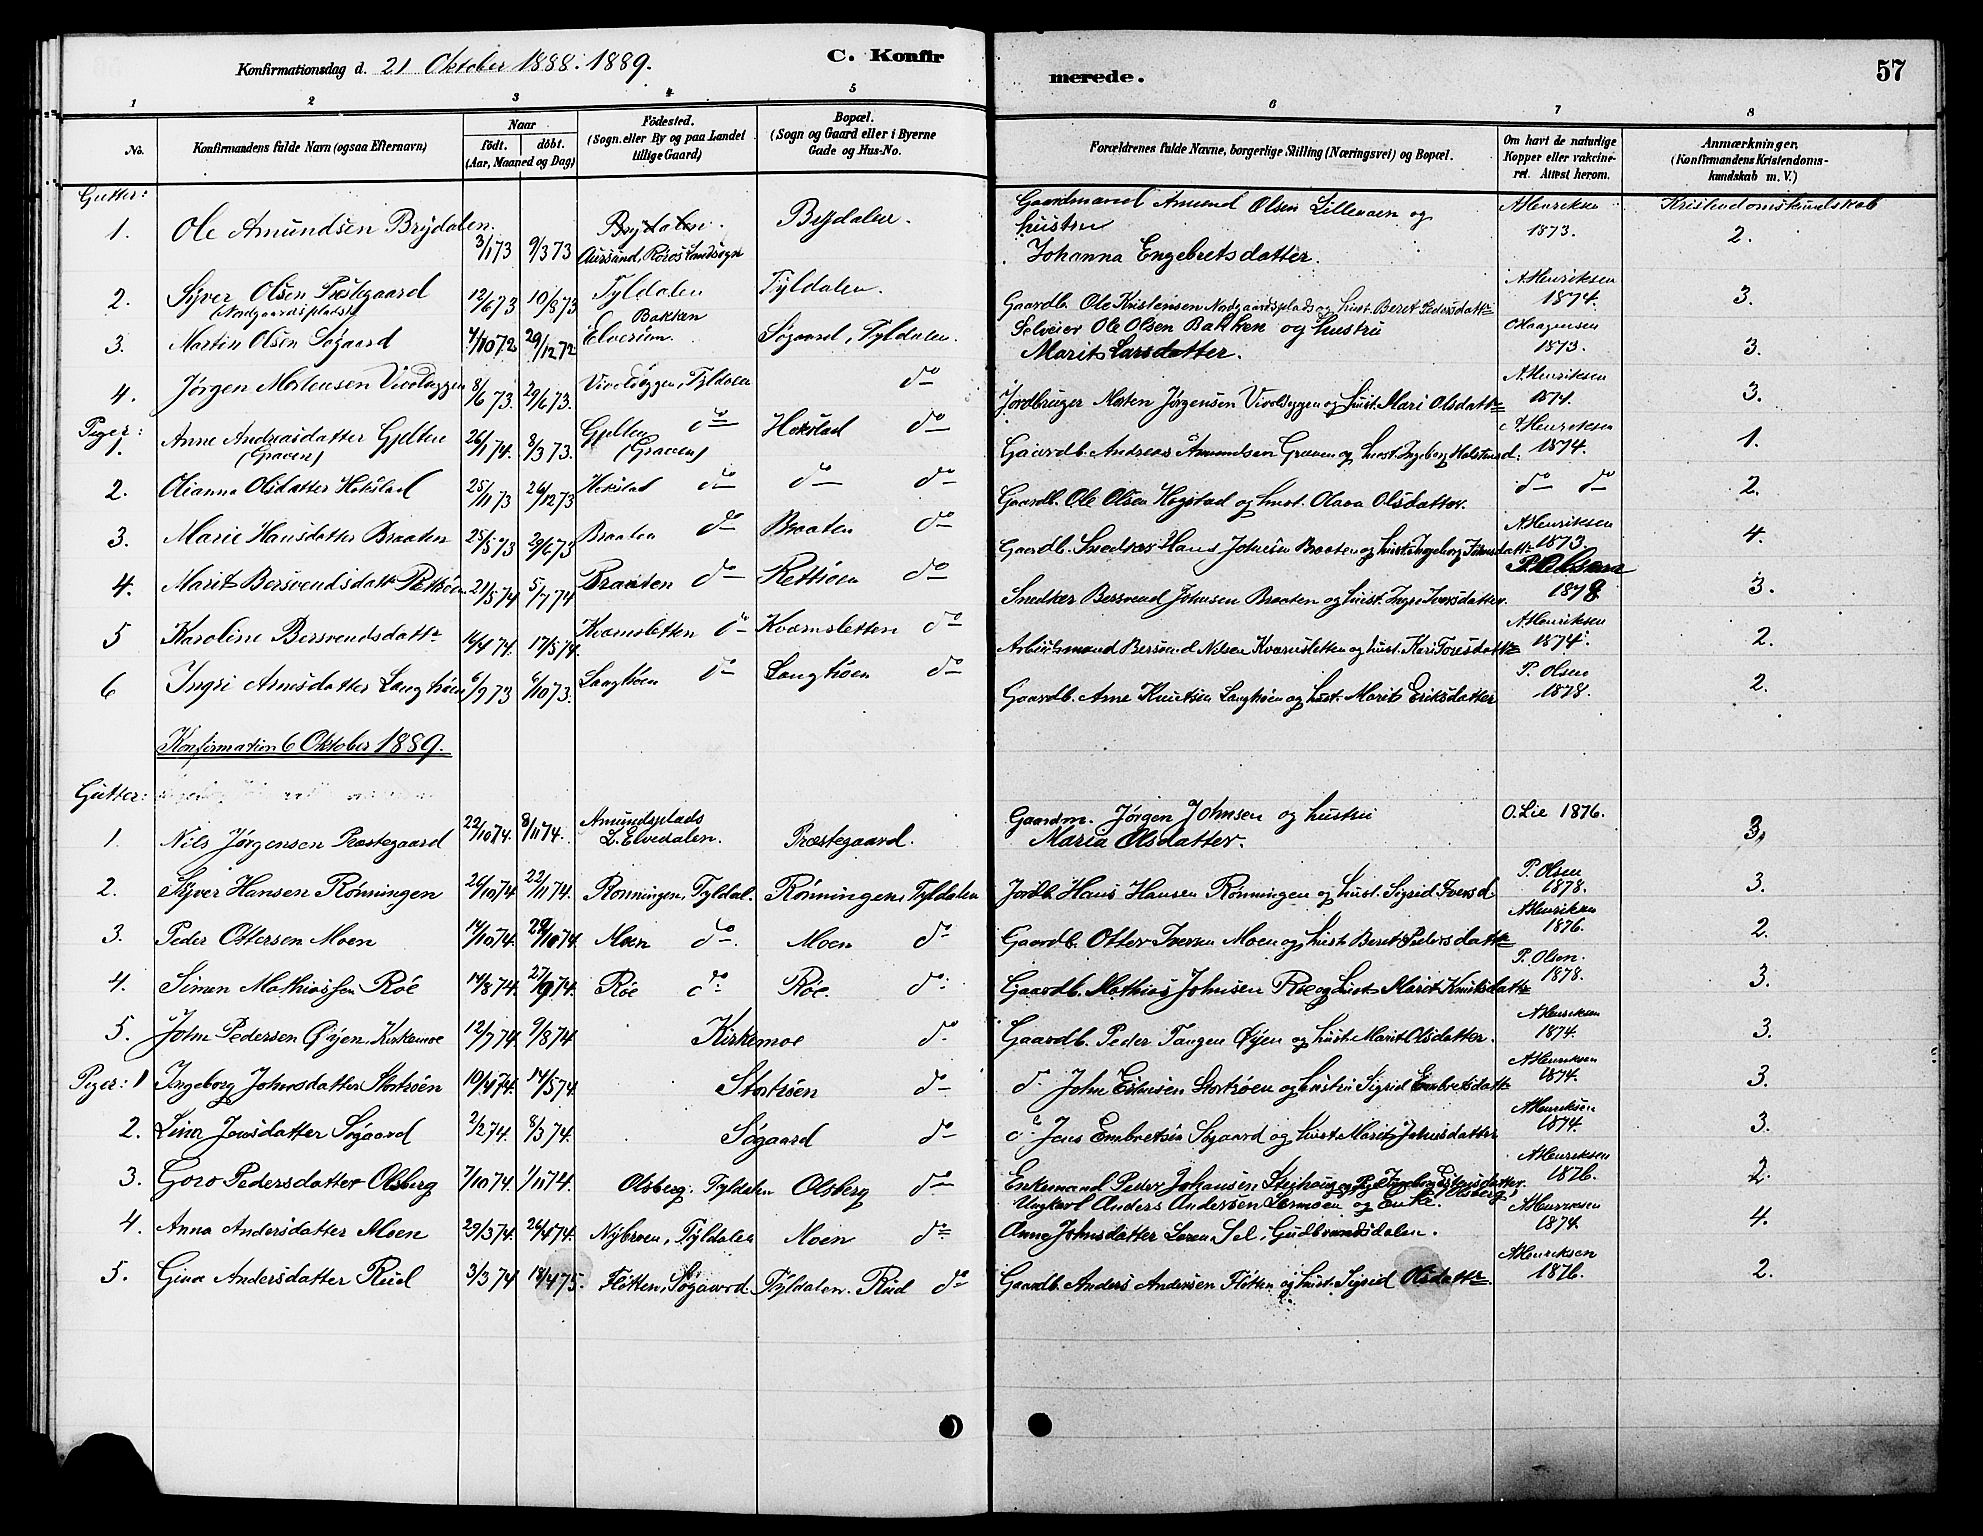 Konfirmationsdag d. 21 Oktober 1888. 1889. C. Konfirmerede. 57
1 2 3 4 5 6 7 8
No. Konfirmandens fulde Navn (ogsaa Efternavn) Naar født. døbt. (Aar, Maaned og Dag) Fødested. (Sogn eller By og paa Landet tillige Gaard) Bopæl. (Sogn og Gaard eller i Byerne Gade og Hus-No. Forældrenes fulde Navne, borgerlige Stilling (Næringsvei) og Bopæl. Om havt de naturlige Kopper eller vakcineret. Attest herom. Anmærkninger. (Konfirmandens Kristendomskundskab m. V.)
Gutter:
1. Ole Amundsen Brydalen. 3/1 73 9/3 73 Brydalen. Aursund, Røros Landsogn Brydalen. Gaardmand Amund Olsen Lillevaen og hustru Johanna Engebretsdatter. A Henriksen 1873. Kristendomskundskab 2.
2. Syver Olsen Prestegaard (Nordgaardsplads) 12/6 73 10/8 73 Tyldalen Tyldalen. Gaardb. Ole Kristensen Nodgaardsplads og hust. Beret Pedersdattr A Henriksen 1874. 3.
3. Martin Olsen Søgaard 4/10 72 29/12 72 Bakken Elverum. Søgaard, Tyldalen. Selveier Ole Olsen Bakken og hustru Marit Larsdatter. O Haagensen 1873. 3.
4. Jørgen Mortensen Vivolbyggen 8/6 73. 29/6 73. Vivolbyggen, Tyldalen do Jordbruger Morten Jørgensen Vivolbyggen og hust. Mari Olsdattr A. Henriksen 1874. 3.
Piger:
1. Anne Andreasdatter Gjelten (Graven) 26/1 74. 8/3 73. Gjelten do (Graven) Hokstad do Gaardb. Andreas Amundsen Graven og hust. Ingeborg Halstensd. A Henriksen 1874. 1.
2. Olianna Olsdatter Hokstad 25/11 73 26/12 73 Hokstad do do do Gaardb. Ole Olsen Hogstad og hust. Olava Olsdatter. do do 2.
3. Marie Hansdatter Braaten 25/5 73 29/6 73 Braaten do Braaten do Gaardb. Snedker Hans Johnsen Braaten og hust. Ingeborg Jonsdattr A Henriksen 1873. 4.
4. Marit Bersvendsdattr Rettrøen 21/5 74 5/7 74 Braaten do Rettrøen do Snedker Bersvend Johnsen Braaten og hust. Ingri Iversdatter. P. Olsen 1878. 3.
5 Karoline Bersvendsdattr 14/4 74. 17/5 74. Kvamsletten do Kvamsletten do Arbeidsmand Bersvend Nilsen Kvamsletten og hust. Kari Toresdattr A Henriksen 1874. 2.
6 Ingri Arnesdatter Langtrøen 6/9 73 6/10 73. Langtrøen do Langtrøen do Gaardb. Arne Knutsen Langtrøen og hust. Marit Eriksdatter P. Olsen 1878. 2.
Konfirmation 6 Oktober 1889.
Gutter:
1. Nils Jørgensen Præstegaard 22/10 74. 8/11 74. Amundsplads L. Elvedalen. Præstegaard. Gaardm. Jørgen Johnsen og hustru Maria Olsdatter. O. Lie 1876. 3.
2. Syver Hansen Rønningen 26/10 74 22/11 74. Rønningen, Tyldal. Rønningen, Tyldalen Jordb. Hans Hansen Rønningen og hust. Sigrid Iversd. P. Olsen 1878. 3.
3. Peder Ottersen Moen 14/10 74. 29/10 74. Moen do. Moen do Gaardb. Otter Iversen Moen og hust. Beret Pedersdattr A Henriksen 1876. 2.
4. Simen Mathiassen Røe 14/8 74. 27/9 74. Røe do. Røe. do. Gaardb. Mathias Johnsen Røe og hust. Marit Knutsdattr P. Olsen. 1878. 3.
5. John Pedersen Øyen, Kirkemoe 12/7 74. 9/8 74 Kirkemoe do. Gaardb. Peder Tangen Øyen og hust. Marit Olsdatter. A Henriksen 1874. 3.
Piger: 1 Ingeborg Johnsdatter Stortrøen 10/4 74. 14/5 74. Stortrøen do do. John Estensen Stortrøen og hustru Sigrid Embretsdattr A Henriksen 1874. 3.
2. Lina Jensdatter Søgaard 2/2 74. 8/3 74. Søgaard do do Jens Embretsen Søgaard og hust. Marit Johnsdatter A Henriksen 1874. 3.
3. Goro Pedersdatter Olsberg 7/10 74 1/11 74. Olsberg. Tyldalen Olsberg do Enkemand Peder Johansen Steihaug og Pige Ingeborg Estensdatter Olsberg. A Henriksen 1876. 2.
4. Anna Andersdatter Moen 29/3 74. 26/4 74. Nybroen, Tyldalen Moen do Ungkarl Anders Andersen Lermoen og Enke. Anne Johnsdatter Løren, Sel, i Gudbrandsdalen. A Henriksen 1874. 4.
5. Gina Andersdatter Rud 3/3 74 18/4 75. Fløtten, Søgaard Tyldalen. Rud do Gaardb. Anders Andersen Fløtten og hust. Sigrid Olsdattr A Henriksen 1876. 2.